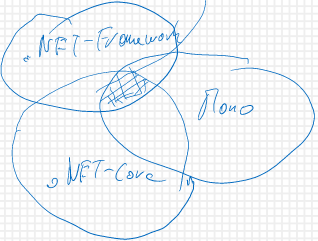 .NET-Framework
Моно
.NET-Core